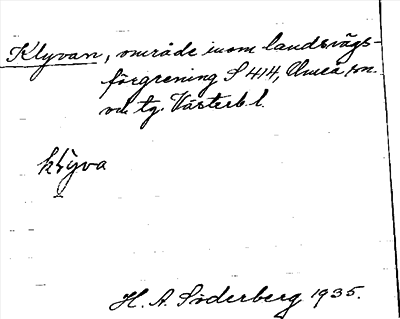 Klyvan, område inom landsvägs-
förgrening S 414, Umeå sn.
och tg. Västerb. l.
klyva
H. A. Söderberg 1935.